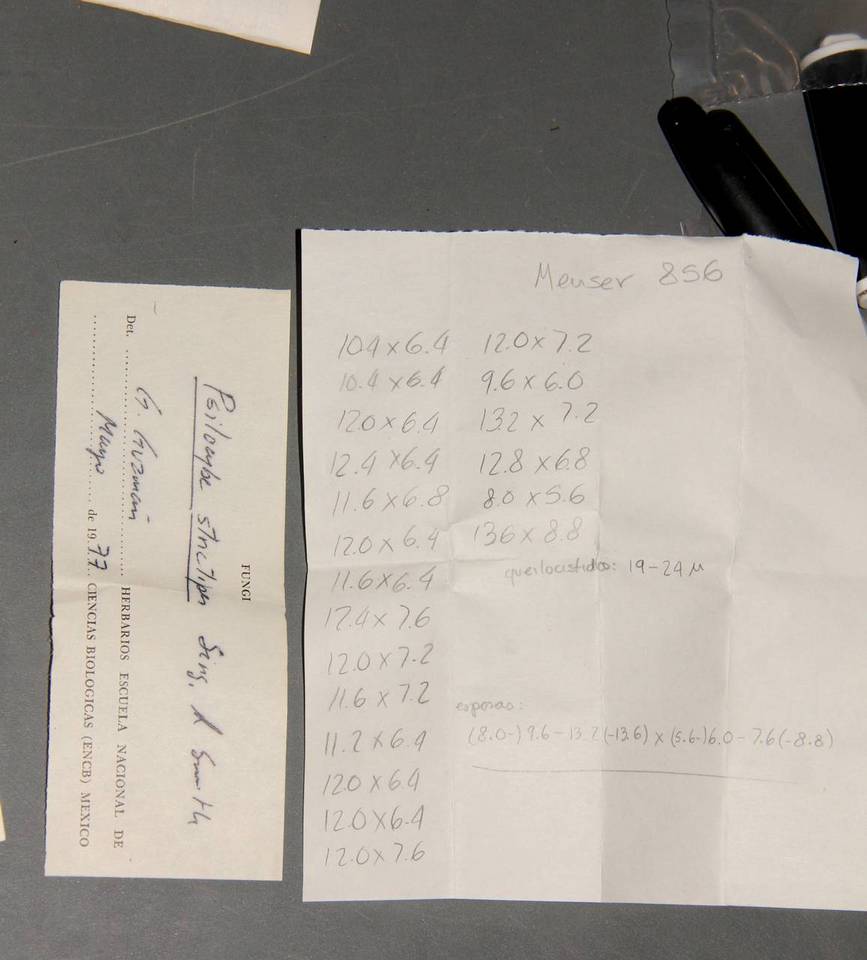 FUNGI
Psilocybe strictipes Sing. & Smith
HERBARIOS ESCUELA NACIONAL DE
CIENCIAS BIOLOGICAS (ENCB) MEXICO
Det. G. Guzmán
Mayo de 1977
Meuser 856
10.4 x 6.4
10.4 x 6.4
12.0 x 6.4
12.4 x 6.4
11.6 x 6.8
12.0 x 6.4
11.6 x 6.4
12.4 x 7.6
12.0 x 7.2
11.6 x 7.2
11.2 x 6.4
12.0 x 6.4
12.0 x 6.4
12.0 x 7.6
12.0 x 7.2
9.6 x 6.0
13.2 x 7.2
12.8 x 6.8
8.0 x 5.6
13.6 x 8.8
queilocistidios: 19-24 µ
esporas:
(8.0-) 9.6-13.2 (-13.6) x (5.6-) 6.0-7.6 (-8.8)